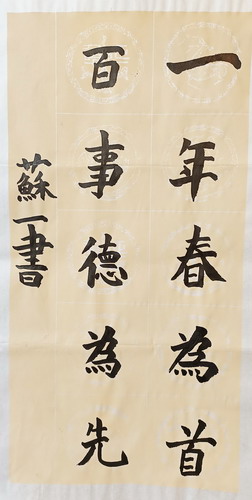 一年春為首
百事德為先
蘇一書